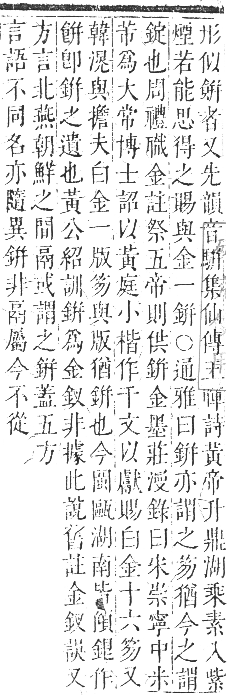 形似鉼者又先韻音騈集仙傳王禪詩黃帝升鼎湖乘素入紫
煙若能思得之賜與金一鉼○通雅曰鉼亦謂之笏猶今之謂
錠也周禮職金註祭五帝則供鉼金墨莊漫錄曰宋崇寧中米
芾爲大常博士詔以黃庭小楷作千文以獻賜白金十六笏又
韓滉與擔夫白金一版笏與版猶鉼也今閩甌湖南皆傾銀作
餠卽鉼之遺也黃公紹訓鉼爲金釵非據此說舊註金釵誤又
方言北燕朝鮮之閒鬲或謂之鉼蓋五方
言語不同名亦隨異鉼非鬲屬今不從